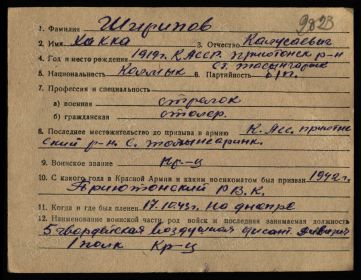 9923
1. Фамилия Шкрипов
2. Имя Хакка 3. Отчество Калусаевич
4. Год и место рождения 1919г. К АССР. Приютенск р-н
5. Национальность Калмык 6. Партийность б/п.
7. Профессия и специальность
а) военная стрелок
б) гражданская столяр.
8. Последнее местожительство до призыва в армию К. Асс. приютнен
ский р-н. с.
9. Воинское звание Кр-ц
10. С какого года в Красной Армии и каким военкоматом был призван 1942г.
Приютненский Р.В.К.
11. Когда и где был пленен 17.10.43г. на днепре
12. Наименование воинской части, род войск и последняя занимаемая должность
5 гвардейская воздушная дисант. дивизия
1 полк Кр-ц